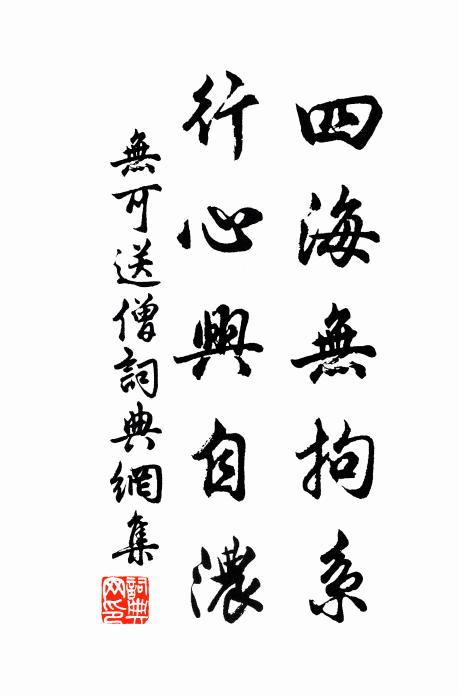 四海無拘系
行心興自濃
無可送僧詞典網集
詞典網印